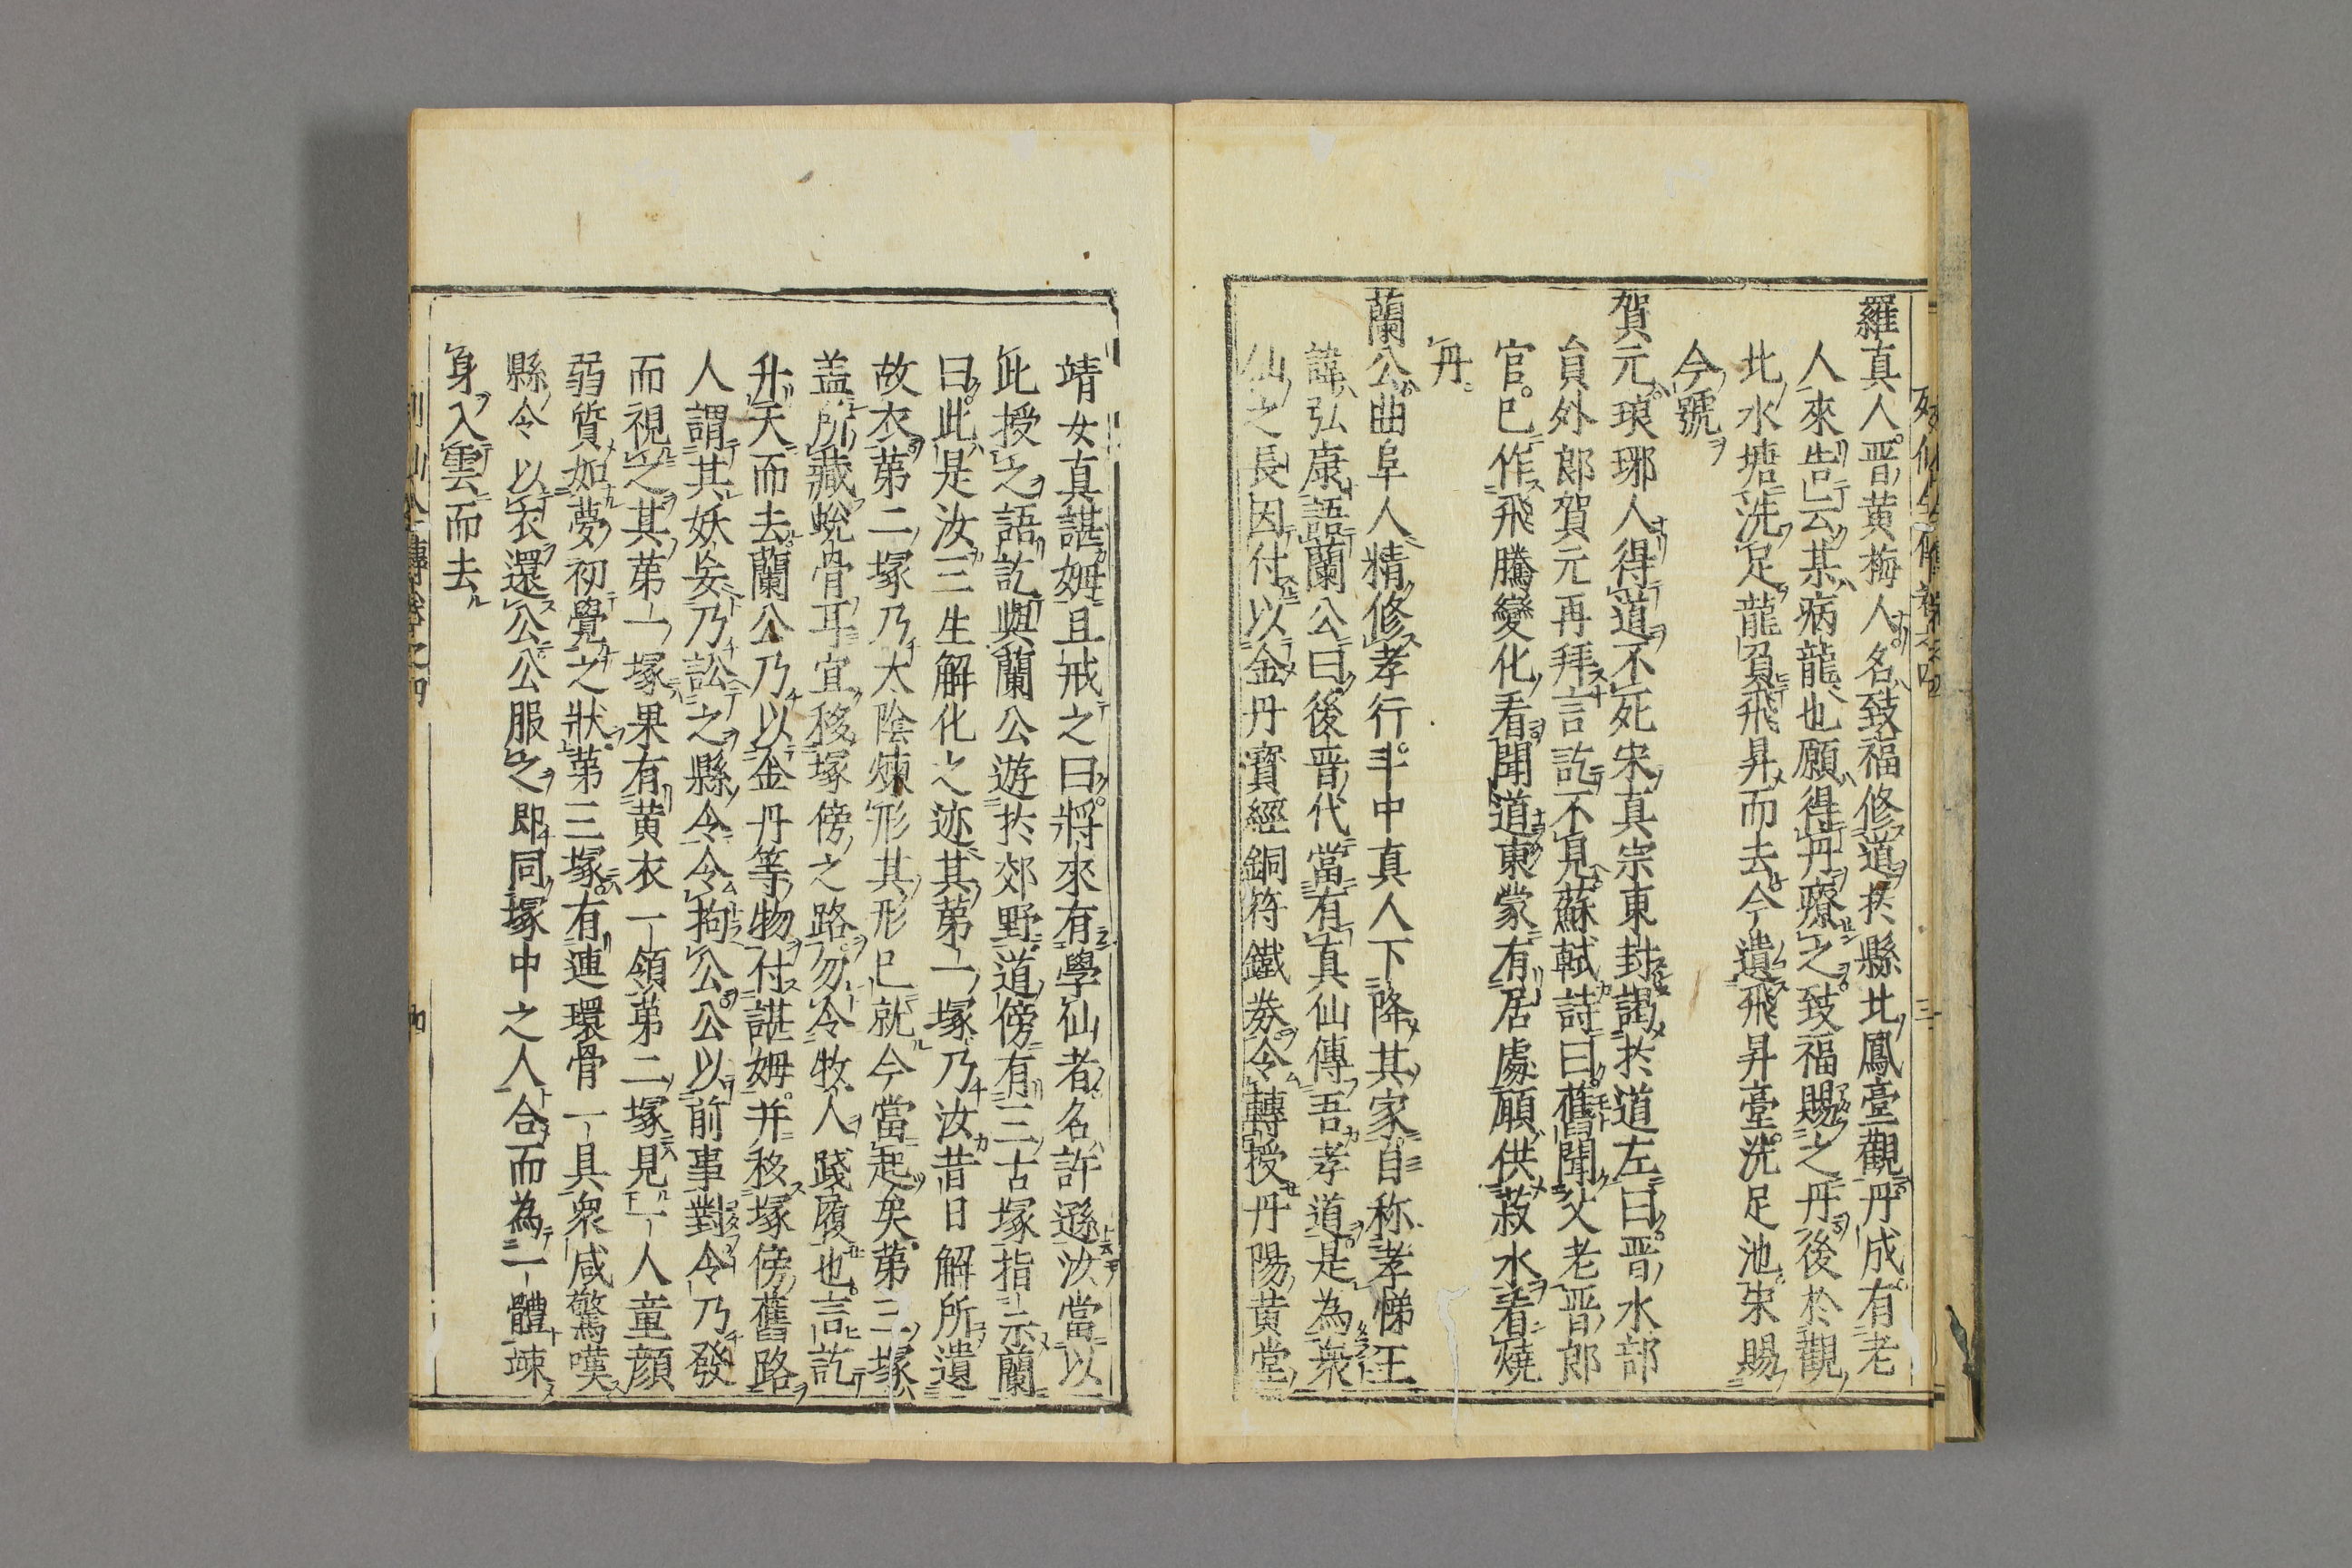 羅真人晋黄梅人名致福修道於縣北鳳臺觀丹成有老
人來告云某病龍也願得丹療之致福賜之丹後於觀
北水塘洗足龍負飛昇而去今遺飛昇臺洗足池宋賜
今號
賀元琅琊人得道不死宋真宗東封謁於道左曰晋水部
員外郎賀元再拜言訖不見蘇軾詩曰舊聞父老晋郎
官已作飛騰變化看聞道東蒙有居處願供菽水看燒
丹
蘭公曲阜人精修孝行斗中真人下降其家自称孝悌王
諱弘康語蘭公曰後晋代當有真仙傳吾孝道是為衆
仙之長因付以金丹寶經銅符鐵券令轉授丹陽黄堂
靖女真諶姆且戒之曰將來有學仙者名許遜汝當以
此授之語訖與蘭公遊於郊野道傍有三古塚指示蘭
曰此是汝三生解化之迹其第一塚乃汝昔日解所遺
故衣第二塚乃太陰煉形其形已就今當起矣第三塚
蓋所藏蛻骨耳宜移塚傍之路勿令牧人踐履也言訖
升天而去蘭公乃以金丹等物付諶姆并移塚傍舊路
人謂其妖妄乃訟之縣令令拘公公以前事對令乃發
而視之其第一塚果有黄衣一領第二塚見一人童顔
弱質如夢初覺之狀第三塚有連環骨一具衆咸驚嘆
縣令以衣還公公服之即同塚中之人合而為一體竦
身入雲而去